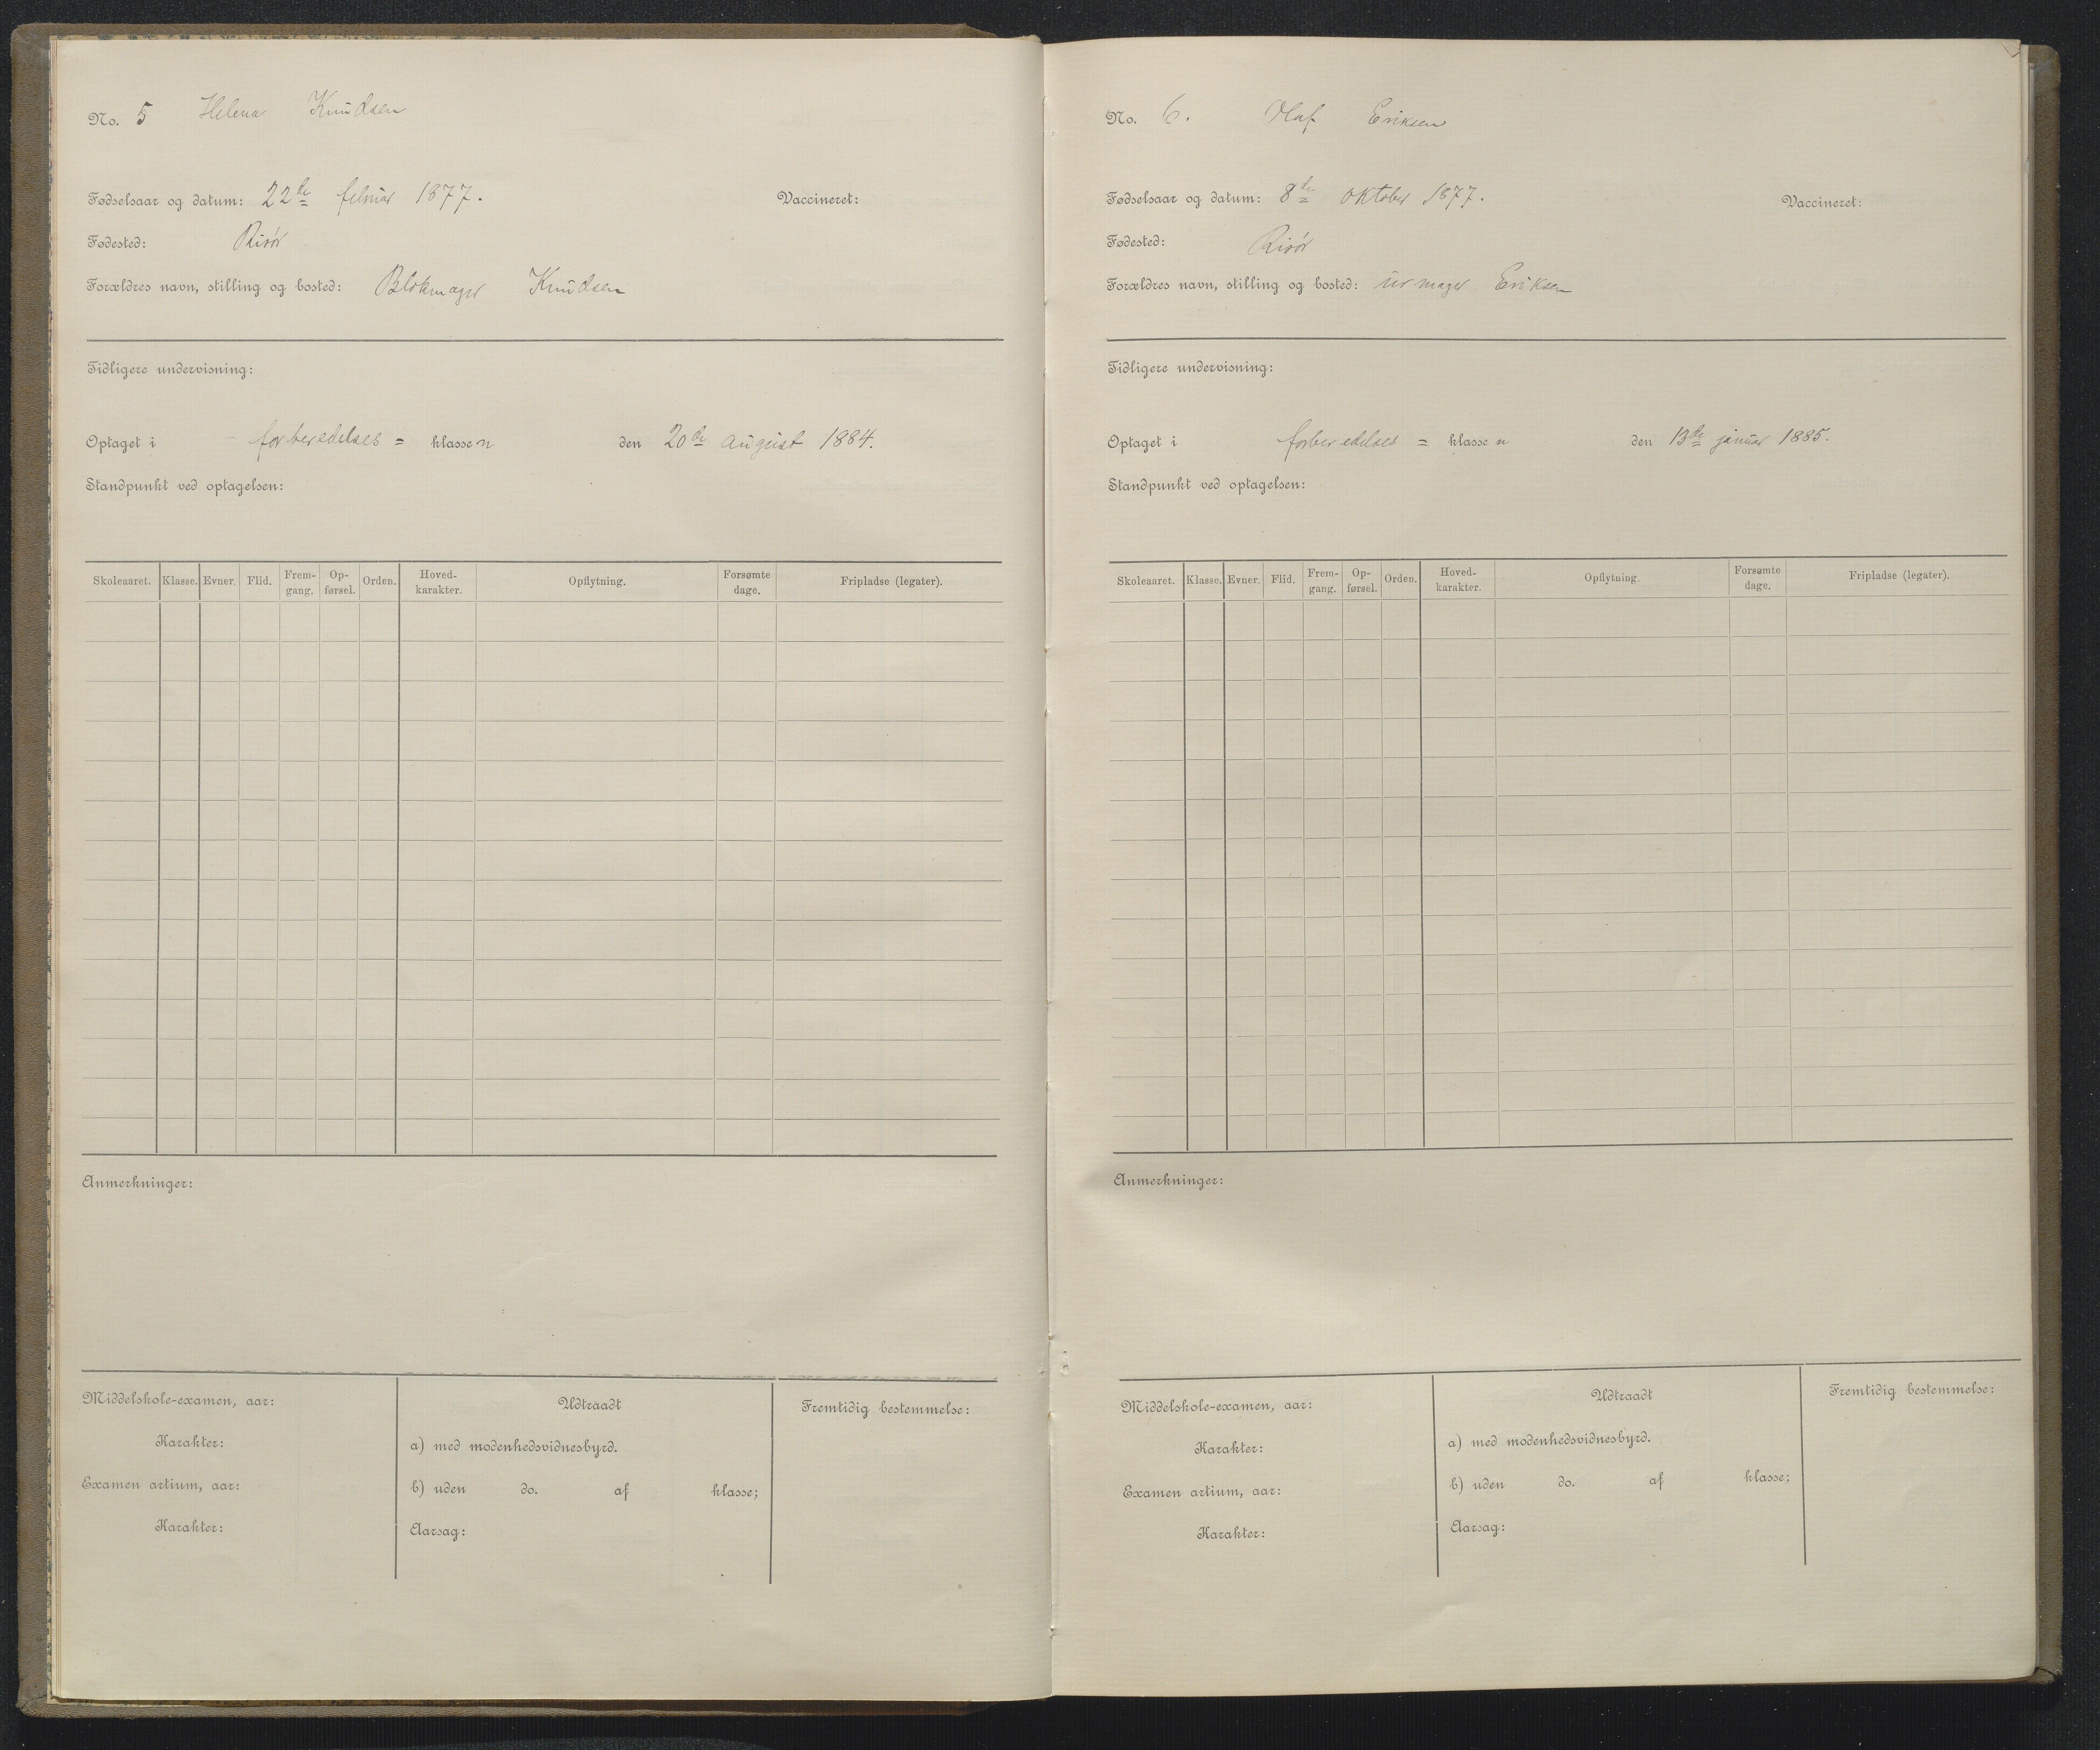 No. 5 Helena Knudsen
Fødselsaar og datum: 22de februar 1877. Vaccineret:
Fødested: Risör
Forældres navn, stilling og bosted: Blokmager Knudsen
Tidligere undervisning:
Optaget i forberedelses= klassen den 20de august 1884.
Standpunkt ved optagelsen:
Skoleaaret. Klasse. Evner. Flid. Frem- Op- Orden. Hoved- Opflytning. Forsømte Fripladse (legater).
gang. førsel. karakter. dage.
Anmerkninger:
Middelskole-examen, aar: Udtraadt Fremtidig bestemmelse:
Karakter: a) med modenhedsvidnesbyrd.
Examen artium, aar: b) uden do. af klasse;
Karakter: Aarsag:
No. 6. Olaf Eriksen
Fødselsaar og datum: 8de oktober 1877. Vaccineret:
Fødested: Risör
Forældres navn, stilling og bosted: urmager Eriksen
Tidligere undervisning:
Optaget i forberedelses= klassen den 13de januar 1885.
Standpunkt ved optagelsen:
Skoleaaret. Klasse. Evner. Flid. Frem- Op- Orden. Hoved- Opflytning. Forsømte Fripladse (legater).
gang. førsel. karakter. dage.
Anmerkninger:
Middelskole-examen, aar: Udtraadt Fremtidig bestemmelse:
Karakter: a) med modenhedsvidnesbyrd.
Examen artium, aar: b) uden do. af klasse;
Karakter: Aarsag: